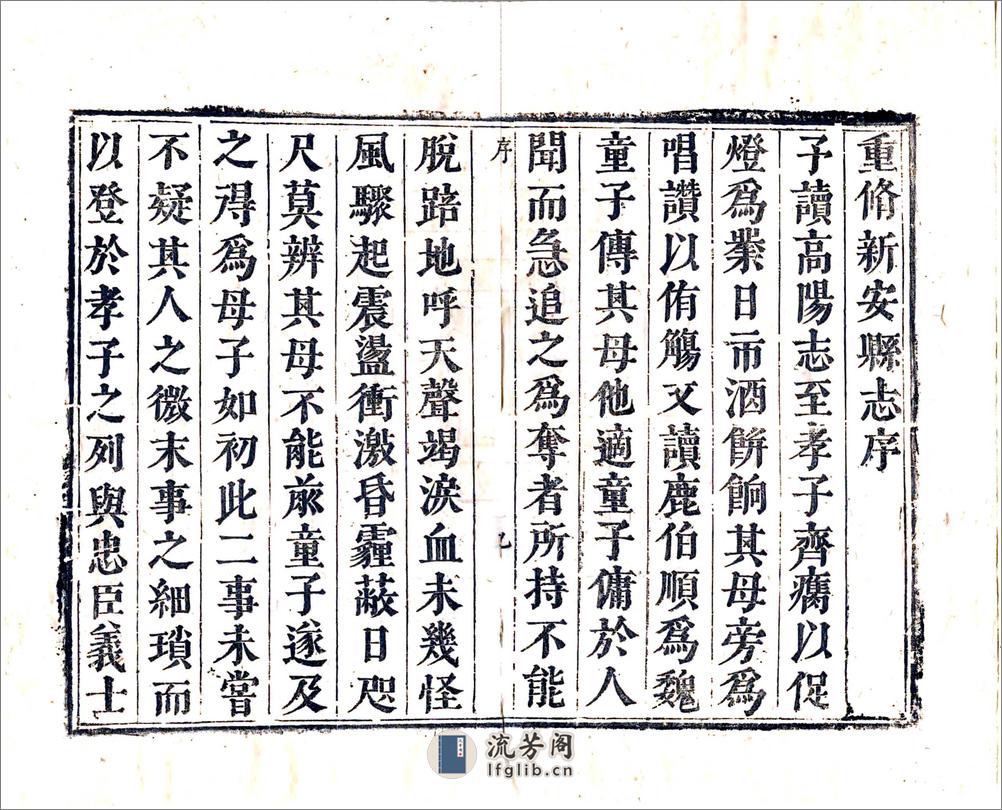 重脩新安縣志序
予讀高陽志至孝子齊癘以促
燈為業日市酒餅餉其母旁為
唱讚以侑觴又讀鹿伯順為魏
童子傳其母他適童子傭於人
聞而急追之為奪者所持不能
序
脫踣地呼天聲竭淚血未幾怪
風驟起震盪衝激昏霾蔽日咫
尺莫辨其母不能前童子遂及
之得為母子如初此二事未嘗
不疑其人之微末事之細瑣而
以登於孝子之列與忠臣義士
流芳阁
lfglib.cn